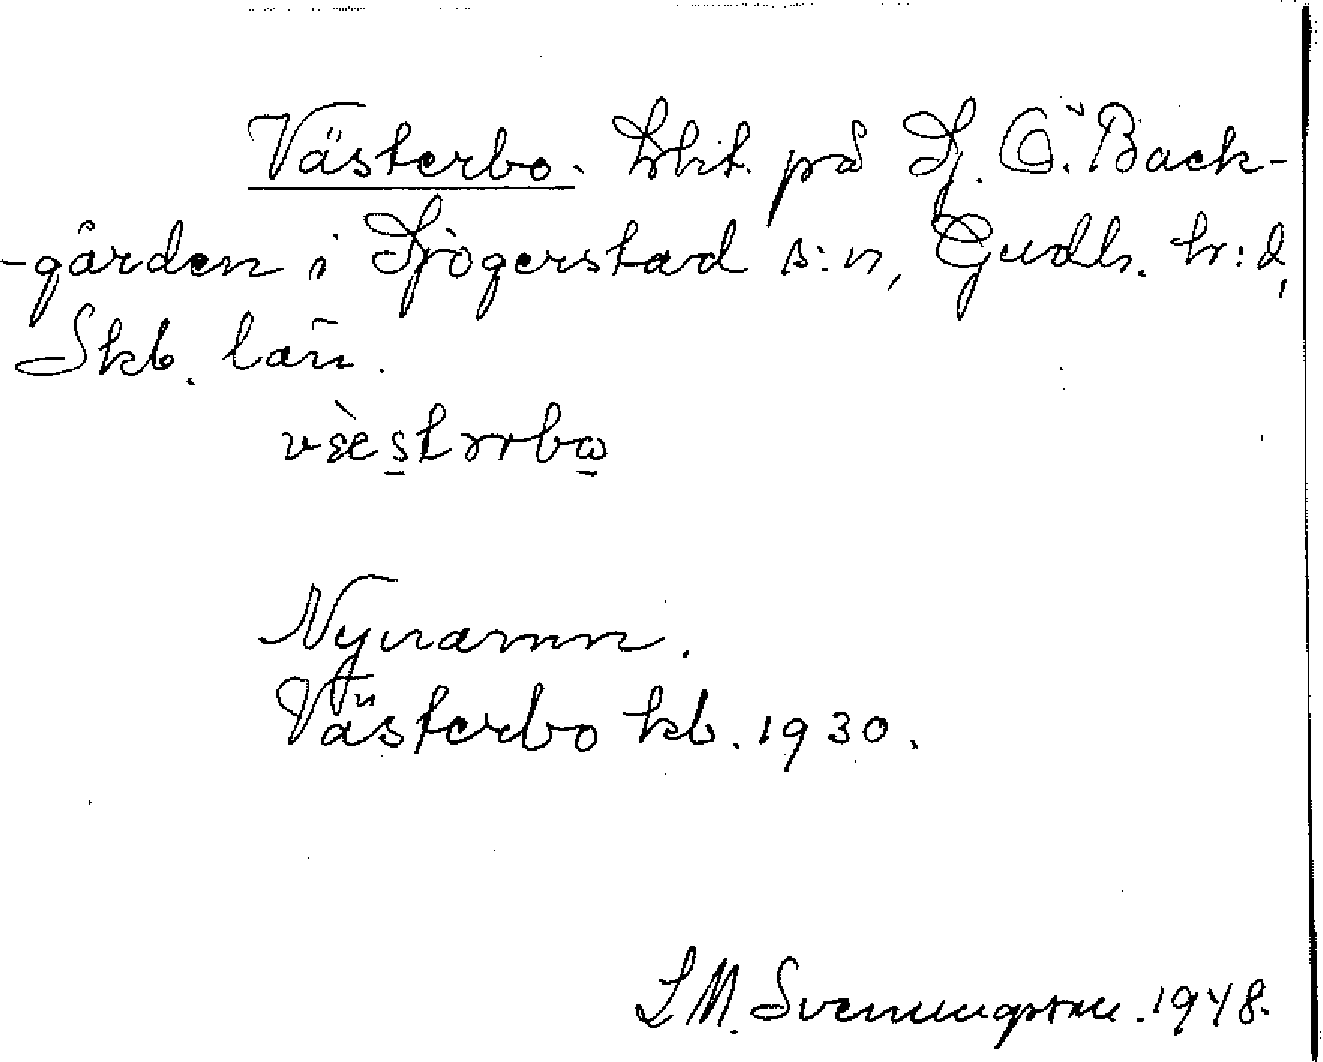 Västerbo. lht. på Sj. Ö. Back-
-gården i Sjögerstad s:n, Gudh. h:d,
Skb. län.
Nynamn.
Västerbo kb. 1930.
S M. Svenungsson. 1948.